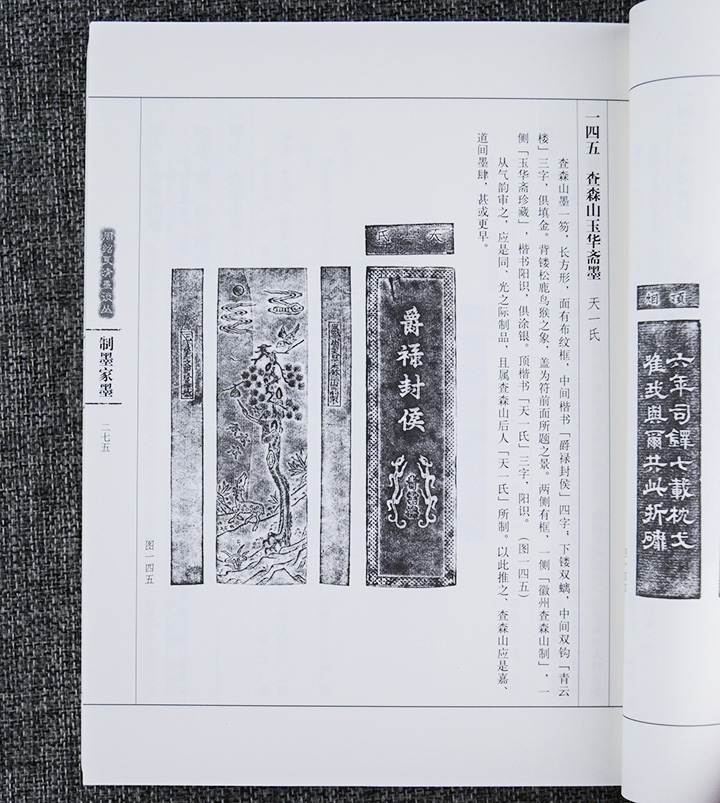 六年司鐸七載枕戈
與爾共此折
一四五 查森山玉华斋墨 天一氏
查森山墨一笏，长方形，面有布纹框，中间楷书「爵禄封侯」四字；下镂双螭，中间双钩「青云
楼」三字，俱填金。背镂松鹿鸟猴之象，盖为符前面所题之景。两侧有框，一侧「徽州查森山制」，一
侧「玉华斋珍藏」，楷书阳识，俱涂银。顶楷书「天一氏」三字，阳识。（图一四五）
从气韵审之，应是同、光之际制品，且属查森山后人「天一氏」所制。以此推之，查森山应是嘉、
道间墨肆，甚或更早。
天一氏
爵禄封侯
图一四五
制墨家墨
二七五